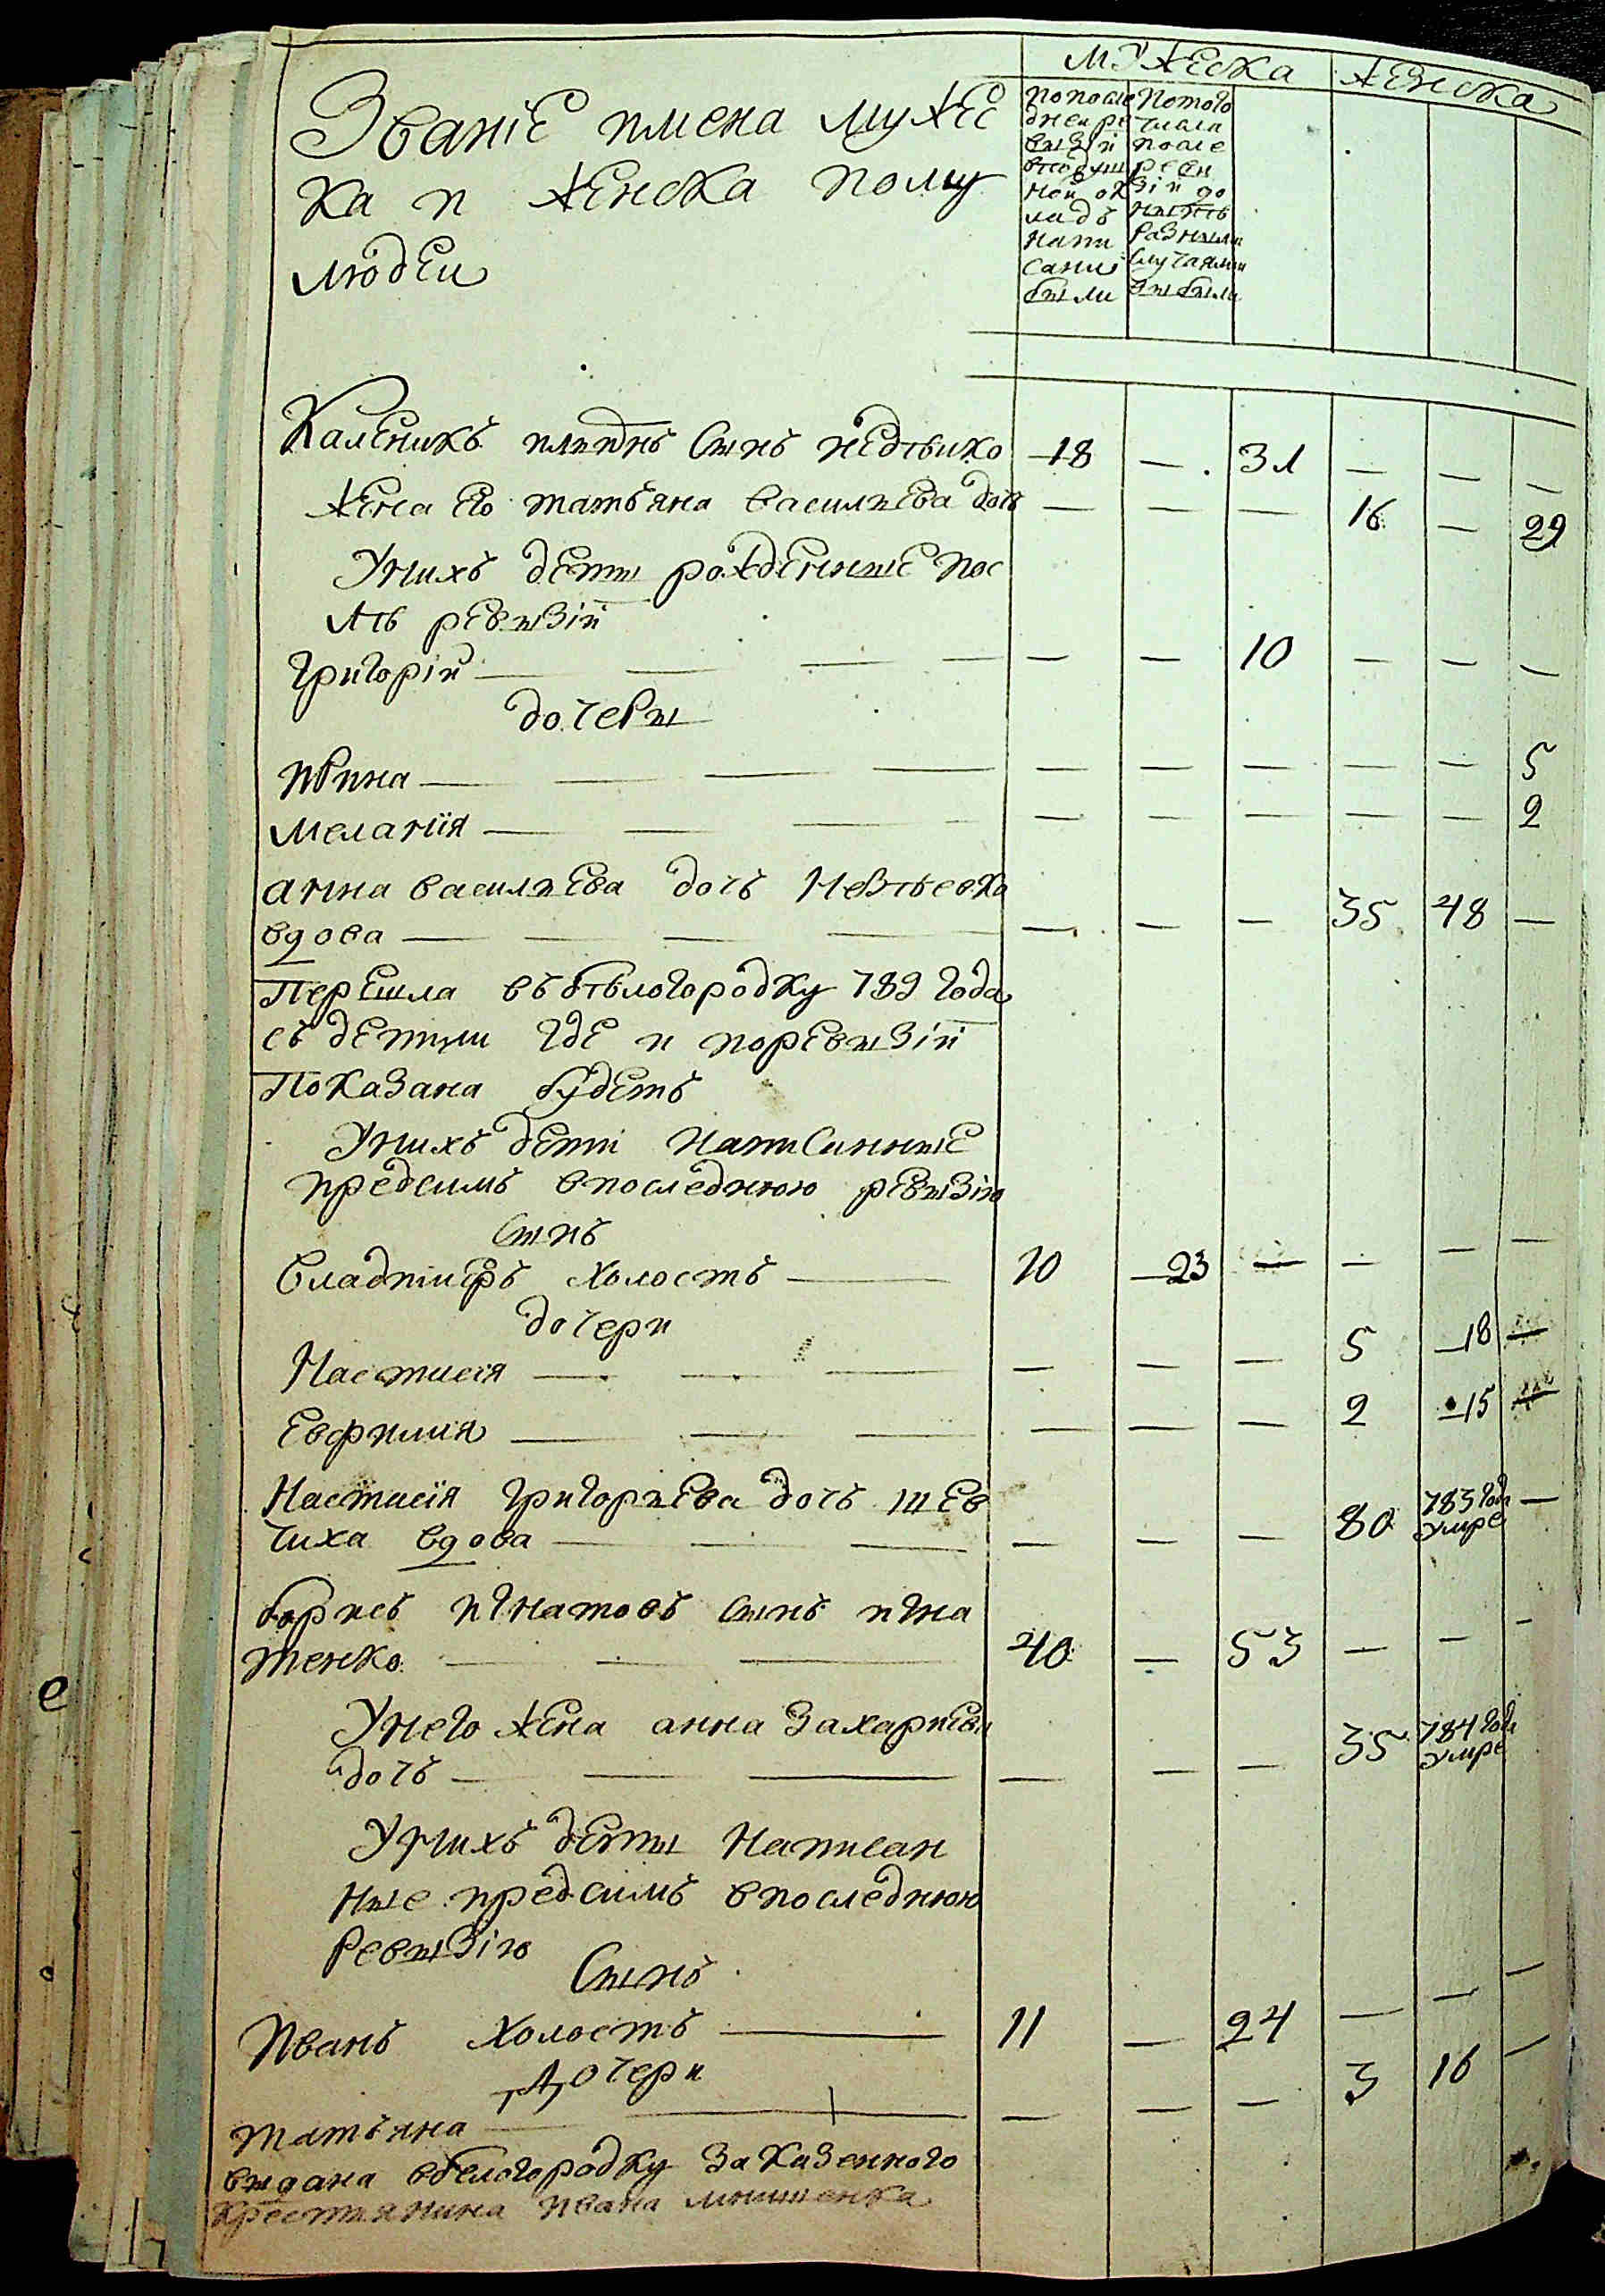 МУЖЕСКА ЖЕНСКА
Званіе имена муже
ска и женска полу
людей
попосле
дней ре
вызіи
вподуш
ной ок
ладъ
напи
саны
были
Потого
числа
после
реви
зіи до
нынѣ
разными
случаями
выбыли
Каленикъ сынъ 18 — 31 — — —
жена его татьяна васильева дочь — — — 16 — 29
Унихъ деты рожденные пос
лѣ ревызіи
григорій — — 10 — — —
дочеры
ирина — — — — — 5
меланія — — — — — 2
анна васильева дочь
вдова — — — 35 48 —
Перешла въ бѣлогородку 789 года
съ детмы где и поревызіи
Показана будетъ
Унихъ деты написанные
предсимъ впоследнюю ревызію
сынъ
владимѣръ холостъ 10 23 — — — —
дочери
Настасія — — — 5 18 —
Евфимия — — — 2 15 —
Настасія григорьева дочь шев
чиха вдова — — — 80 783 года умре —
борисъ игнатовъ сынъ игна
тенко 40 — 53 — — —
Унего жена анна захарьева
дочь — — — 35 784 года умре
Унихъ деты Написан
ные предсимъ впоследнюю
ревызію
Сынъ
иванъ холостъ 11 — 24 — — —
Дочери
татьяна — — — 3 16 —
выдана вбелогородку заказенного
крестянина ивана